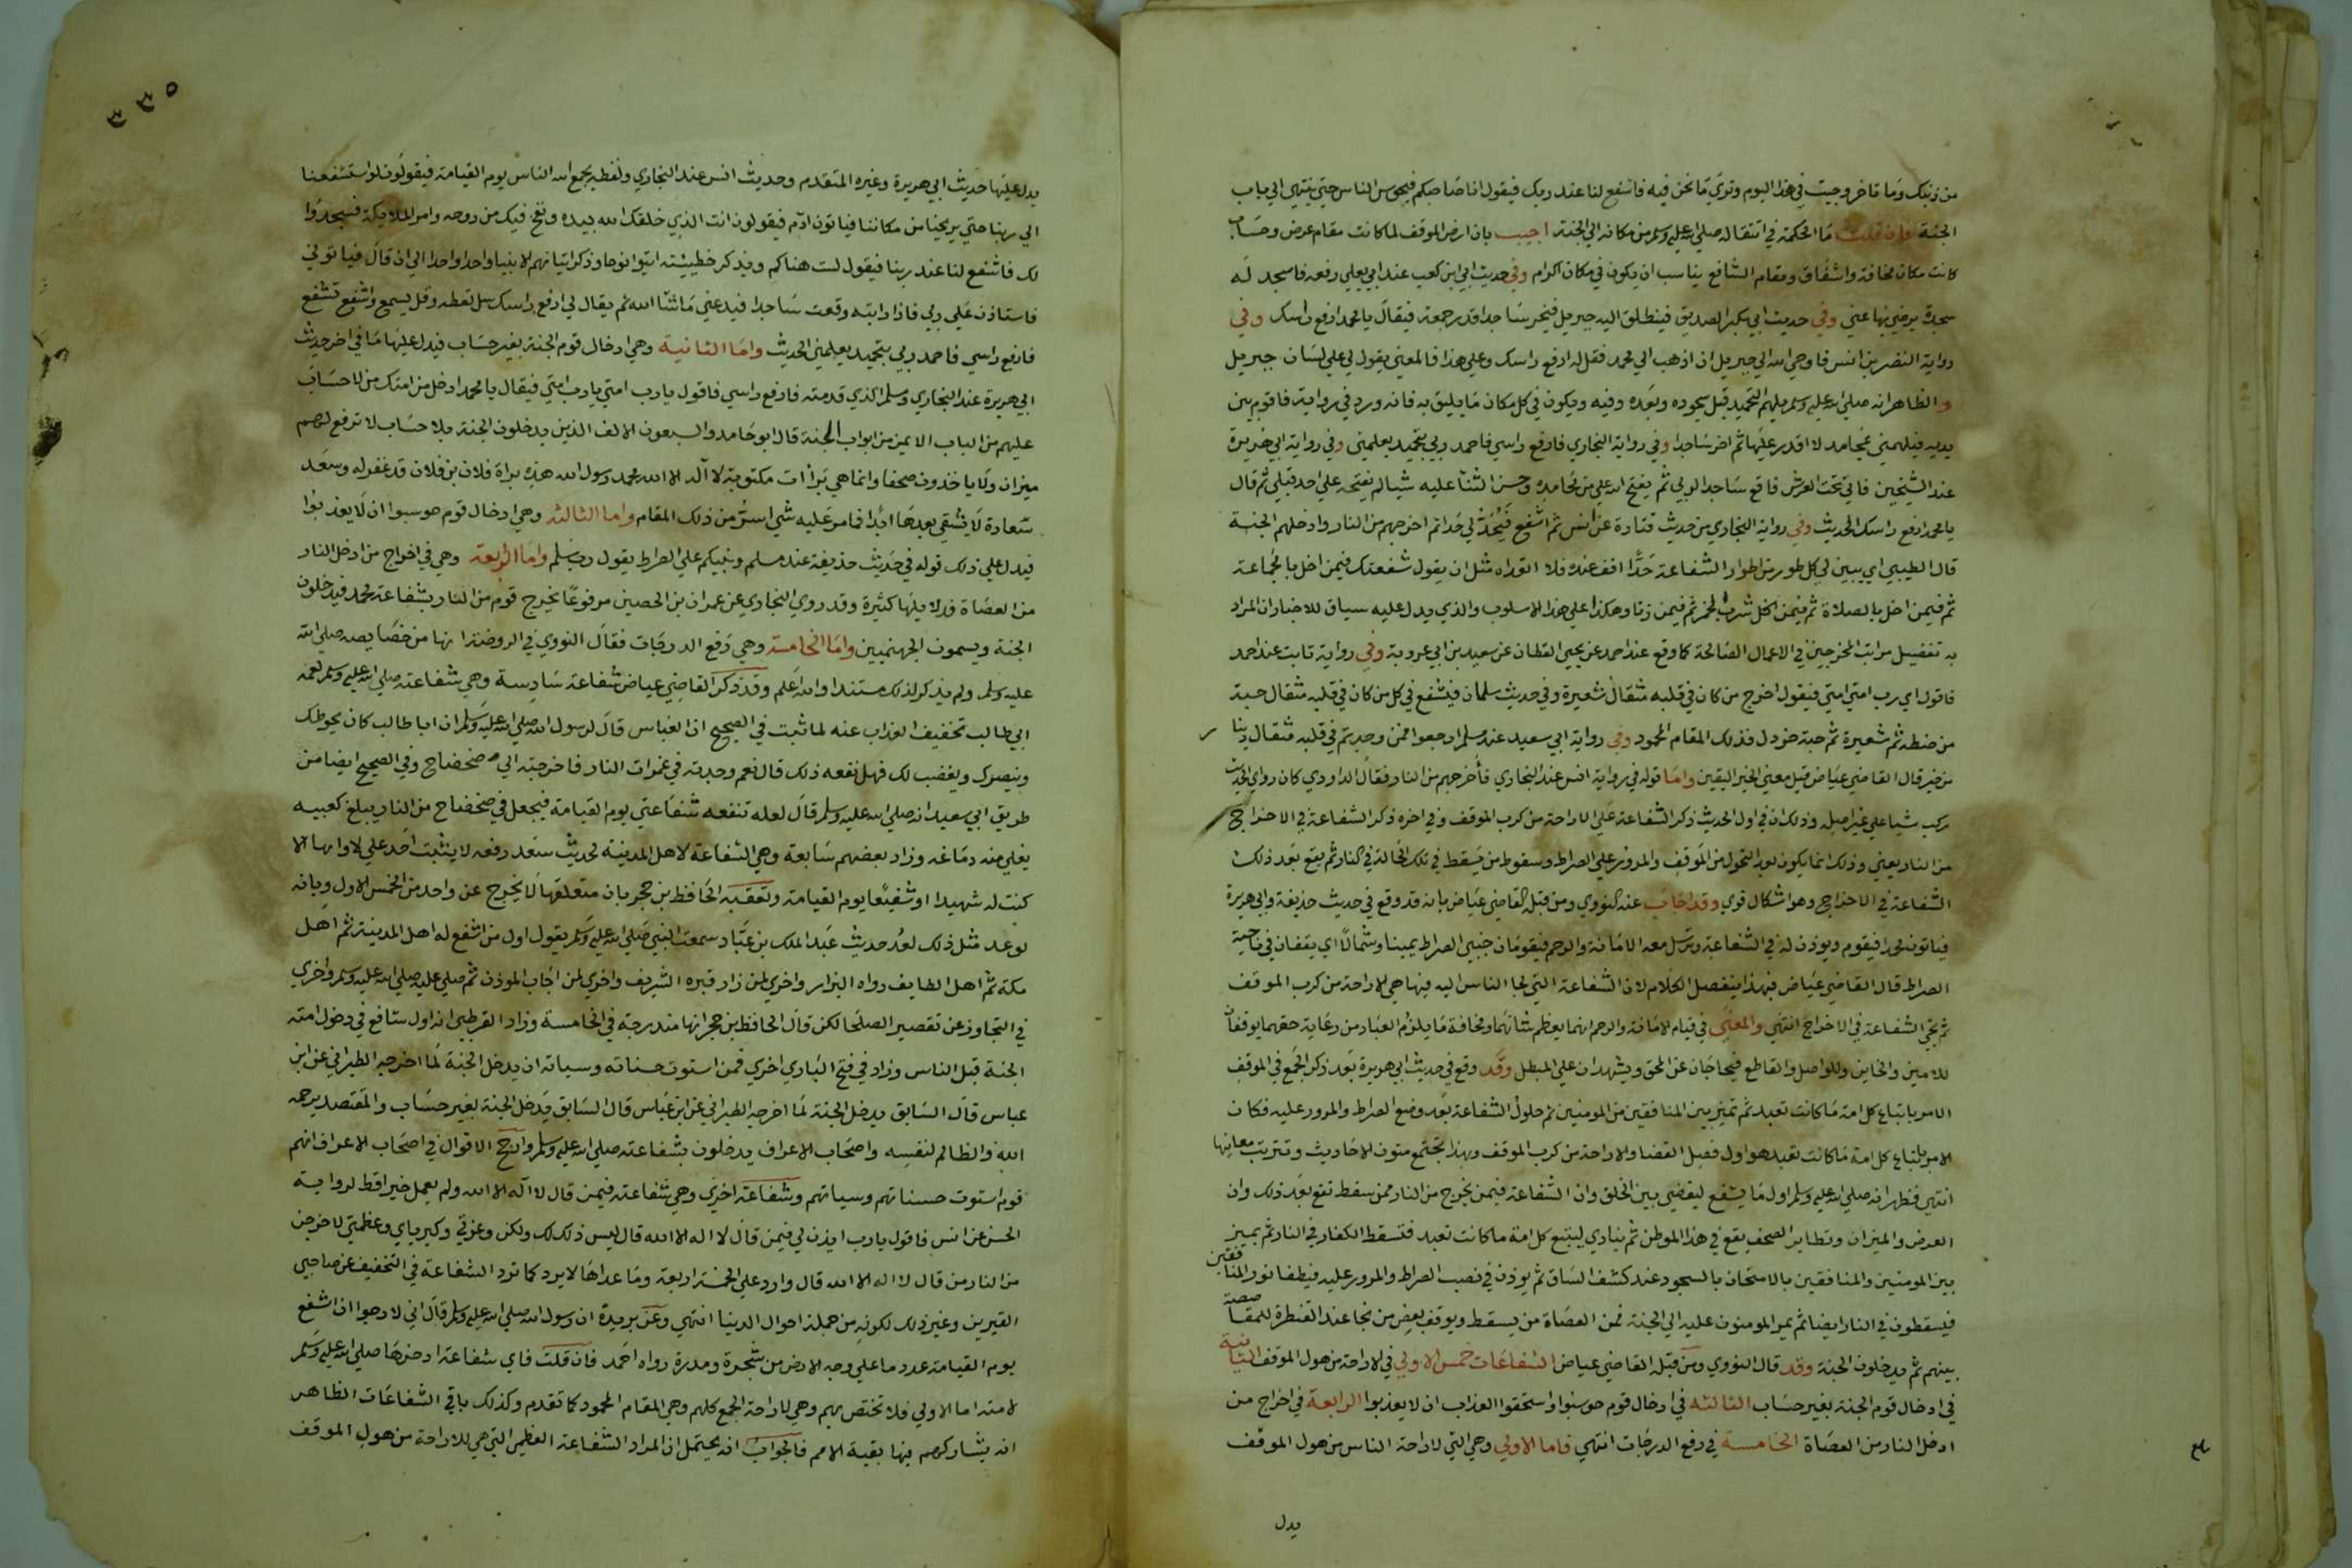 من ذنبك وما تاخر وجيت في هذا اليوم وتري ما نحن فيه فاشفع لنا عند ربك فيقول انا صاحبكم فيحوس الناس حتي ينتهي الي باب
الجنة فان قلت ما الحكمة في انتقاله صلي الله عليه وسلم من مكانه الي الجنة اجيب بان ارض الموقف لما كانت مقام عرض وحساب
كانت مكان مخافة واشفاق ومقام الشافع يناسب ان يكون في مكان اكرام وفي حديث ابي ابن كعب عند ابي يعلي رفعه فاسجد له
سجدة يرضي بها عني وفي حديث ابي بكر الصديق فينطلق اليه جبريل فيخر ساجدا قدر جمعة فيقال يا محمد ارفع راسك وفي
رواية النضر بن انس فاوحي الله الي جبريل ان اذهب الي محمد فقل له ارفع راسك وعلي هذا فالمعني يقول لي علي لسان جبريل
والظاهر انه صلي الله عليه وسلم يلهم التحميد قبل سجوده وبعده وفيه ويكون في كل مكان ما يليق به فانه ورد في رواية فاقوم بين
يديه فيلهمني بمحامد لا اقدر عليها ثم اخر ساجدا وفي رواية البخاري فارفع راسي فاحمد ربي بتحميد يعلمني وفي رواية ابي هريرة
عند الشيخين فاتي تحت العرش فاقع ساجدا لربي ثم يفتح الله علي من محامده وحسن الثنا عليه شيا لم يفتحه علي احد قبلي ثم قال
يا محمد ارفع راسك الحديث وفي رواية البخاري من حديث قتادة عن انس ثم اشفع فيحد لي حدا ثم اخرجهم من النار وادخلهم الجنة
قال الطيبي اي يبين لي كل طور من اطوار الشفاعة حدا اقف عنده فلا اتعداه مثل ان يقول شفعتك فيمن اخل بالجماعة
ثم فيمن اخل بالصلاة ثم فيمن شرب الخمر ثم فيمن زنا وهكذا علي هذا الاسلوب والذي يدل عليه سياق الاخبار ان المراد
به تفضيل مراتب المخرجين في الاعمال الصالحة كما وقع عند احمد عن يحيي القطان عن سعيد بن ابي عروبة وفي رواية ثابت عند احمد
فاقول اي رب امتي امتي فيقول اخرج من كان في قلبه مثقال شعيرة وفي حديث سلمان فيشفع في كل من كان في قلبه مثقال حبة
من حنطه ثم شعيرة ثم حبة خردل فذلك المقام المحمود وفي رواية ابي سعيد عند مسلم ارجعوا فمن وجدتم في قلبه مثقال دينا
من خير قال القاضي عياض قيل معني الخير اليقين واما قوله في رواية انس عند البخاري فاخرجهم من النار فقال الداودي كان راوي الحديث
ركب شيا علي غير اصله وذلك ان في اول الحديث ذكر الشفاعة علي الاراحة من كرب الموقف وفي اخره ذكر الشفاعة في الاخراج
من النار يعني وذلك انما يكون بعد التحول من الموقف والمرور علي الصراط وسقوط من يسقط في تلك الحالة في النار ثم يقع بعد ذلك
الشفاعة في الاخراج وهو اشكال قوي وقد اجاب عنه النووي ومن قبله القاضي عياض بانه قد وقع في حديث حذيفة وابي هريرة
فياتون محمدا فيقوم ويوذن له في الشفاعة وترسل معه الامانة والرحم فيقومان جنبي الصراط يمينا وشمالا اي يقفان في ناحية
الصراط قال القاضي عياض فبهذا ينفصل الكلام لان الشفاعة التي لجا الناس اليه فيها هي الاراحة من كرب الموقف
ثم تجي الشفاعة في الاخراج انتهي والمعني في قيام الامانة والرحم انهما يعظم شانهما ومخافة ما يلزم العباد من رعاية حقهما يوقفان
للامين والخاين وللواصل والقاطع فيحاجان عن المحق ويشهدان علي المبطل وقد وقع في حديث ابي هريرة بعد ذكر الجمع في الموقف
الامر باتباع كل امة ما كانت تعبد ثم تميز بين المنافقين من المومنين ثم حلول الشفاعة بعد وضع الصراط والمرور عليه فكان
الامر باتباع كل امة ما كانت تعبد هو اول فصل القضا والاراحة من كرب الموقف وبهذا تجتمع متون الاحاديث وتترتب معانيها
انتهي فظهر انه صلي الله عليه وسلم اول ما يشفع ليقضي بين الخلق وان الشفاعة فيمن يخرج من النار ممن سقط تقع بعد ذلك وان
العرض والميزان وتطاير الصحف يقع في هذا الموطن ثم ينادي ليتبع كل امة ما كانت تعبد فتسقط الكفار في النار ثم يميز
بين المومنين والمنافقين بالامتحان بالسجود عند كشف الساق ثم يوذن في نصب الصراط والمرور عليه فيطفا نور المنافقين
فيسقطون في النار ايضا ثم يمر المومنون عليه الي الجنة فمن العصاة من يسقط ويوقف بعض من نجا عند القنطرة للمقاصصة
بينهم ثم يدخلون الجنة وقد قال النووي ومن قبله القاضي عياض الشفاعات خمس الاولي في الاراحة من هول الموقف الثانية
في ادخال قوم الجنة بغير حساب الثالثه في ادخال قوم حوسبوا واستحقوا العذاب ان لا يعذبوا الرابعة في اخراج من
ادخل النار من العصاة الخامسة في رفع الدرجات انتهي فاما الاولي وهي التي لاراحة الناس من هول الموقف
يدل
٣٣٥
يدل عليها حديث ابي هريرة وغيره المتقدم وحديث انس عند البخاري ولفظه يجمع الله الناس يوم القيامة فيقولون لو استشفعنا
الي ربنا حتي يريحنا من مكاننا فياتون ادم فيقولون انت الذي خلقك الله بيده ونفخ فيك من روحه وامر الملايكة فسجدوا
لك فاشفع لنا عند ربنا فيقول لست هناكم ويذكر خطيئته ايتوا نوحا وذكر اتيانهم الانبيا واحدا واحدا الي ان قال فياتوني
فاستاذن علي ربي فاذا رايته وقعت ساجدا فيدعني ما شا الله ثم يقال لي ارفع راسك سل تعطه وقل يسمع واشفع تشفع
فارفع راسي فاحمد ربي بتحميد يعلمني الحديث واما الثانية وهي ادخال قوم الجنة بغير حساب فيدل عليها ما في اخر حديث
ابي هريرة عند البخاري ومسلم الذي قدمته فارفع راسي فاقول يا رب امتي يا رب امتي فيقال يا محمد ادخل من امتك من لا حساب
عليهم من الباب الايمن من ابواب الجنة قال ابو حامد والسبعون الالف الذين يدخلون الجنة بلا حساب لا ترفع لهم
ميزان ولا ياخذون صحفا وانما هي برأات مكتوبة لا اله الا الله محمد رسول الله هذه براة فلان بن فلان قد غفر له وسعد
سعادة لا يشقي بعدها ابدا فما مر عليه شي اسر من ذلك المقام واما الثالثه وهي ادخال قوم حوسبوا ان لا يعذبوا
فيدل علي ذلك قوله في حديث حذيفة عند مسلم ونبيكم علي الصراط يقول رب سلم واما الرابعة وهي في اخراج من ادخل النار
من العصاة فدلايلها كثيرة وقد روي البخاري عن عمران بن الحصين مرفوعا يخرج قوم من النار بشفاعة محمد فيدخلون
الجنة ويسمون الجهنميين واما الخامسة وهي رفع الدرجات فقال النووي في الروضة انها من خصايصه صلي الله
عليه وسلم ولم يذكر لذلك مستندا والله اعلم وقد ذكر القاضي عياض شفاعة سادسة وهي شفاعته صلي الله عليه وسلم لعمه
ابي طالب تخفيف العذاب عنه لما ثبت في الصحيح ان العباس قال لرسول الله صلي الله عليه وسلم ان ابا طالب كان يحوطك
وينصرك ويغضب لك فهل نفعه ذلك قال نعم وجدته في غمرات النار فاخرجته الي ضحضاح وفي الصحيح ايضا من
طريق ابي سعيد انه صلي الله عليه وسلم قال لعله تنفعه شفاعتي يوم القيامة فيجعل في ضحضاح من النار يبلغ كعبيه
يغلي منه دماغه وزاد بعضهم سابعة وهي الشفاعة لاهل المدينة لحديث سعد رفعه لا يثبت احد علي لاوايها الا
كنت له شهيدا او شفيعا يوم القيامة وتعقبه الحافظ بن حجر بان متعلقها لا يخرج عن واحد من الخمس الاول وبانه
لو عد مثل ذلك لعد حديث عبد الملك بن عباد سمعت النبي صلي الله عليه وسلم يقول اول من اشفع له اهل المدينة ثم اهل
مكة ثم اهل الطايف رواه البزار واخري لمن زار قبره الشريف واخري لمن اجاب الموذن ثم صلي عليه صلي الله عليه وسلم واخري
في التجاوز عن تقصير الصلحا لكن قال الحافظ بن حجر انها مندرجة في الخامسة وزاد القرطبي انه اول شافع في دخول امته
الجنة قبل الناس وزاد في فتح الباري اخري فمن استوت حسناته وسياته ان يدخل الجنة لما اخرجه الطبراني عن ابن
عباس قال السابق يدخل الجنة لما اخرجه الطبراني عن ابن عباس قال السابق يدخل الجنة بغير حساب والمقتصد يرحمه
الله والظالم لنفسه واصحاب الاعراف يدخلون بشفاعته صلي الله عليه وسلم وارجح الاقوال في اصحاب الاعراف انهم
قوم استوت حسناتهم وسياتهم وشفاعة اخري وهي شفاعته فيمن قال لا اله الا الله ولم يعمل خيرا قط لرواية
الحسن عن انس فاقول يا رب ايذن لي فيمن قال لا اله الا الله قال ليس ذلك لك ولكن وعزتي وكبرياي وعظمتي لاخرجن
من النار من قال لا اله الا الله قال وارد علي الخمسة اربعة وما عداها لا يرد كما ترد الشفاعة في التخفيف عن صاحبي
القبرين وغير ذلك لكونه من جملة احوال الدنيا انتهي وعن بريدة ان رسول الله صلي الله عليه وسلم قال اني لارجوا ان اشفع
يوم القيامة عدد ما علي وجه الارض من شجرة ومدرة رواه احمد فان قلت فاي شفاعة ادخرها صلي الله عليه وسلم
لامته اما الاولي فلا تختص بهم وهي لاراحة الجمع كلهم وهي المقام المحمود كما تقدم وكذلك باقي الشفاعات الظاهر
انه يشاركهم فيها بقية الامم فالجواب انه يحتمل ان المراد الشفاعة العظمي التي هي للاراحة من هول الموقف